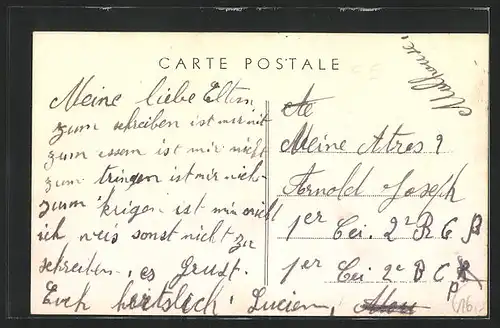 CARTE POSTALE
Mulhouse
Meine liebe Eltern
zum schreiben ist mir nit
zum essem ist mir nicht
zum tringen ist mir nich-
zum krigen ist mir nicht
ich weis sonst nicht zu
schreiben, es Grust.
Euch hertslich: Lucien,
Meine Atres
Arnold Joseph
1er Cei. 2e R C P
1er Cei 2e B C P